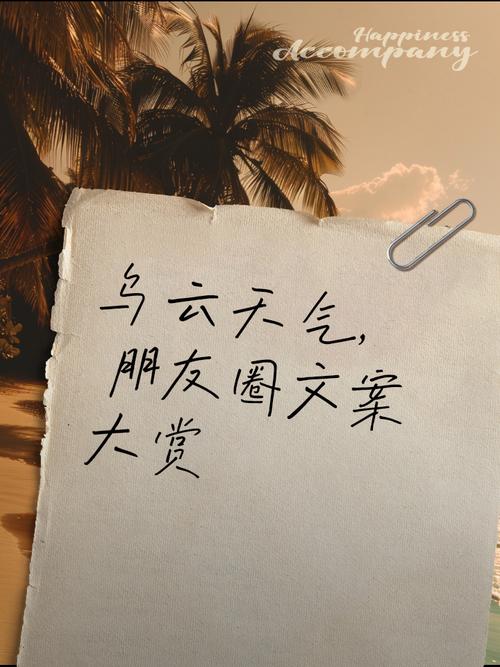 Happiness
Accompany
乌云天气,
朋友圈文案
大赏